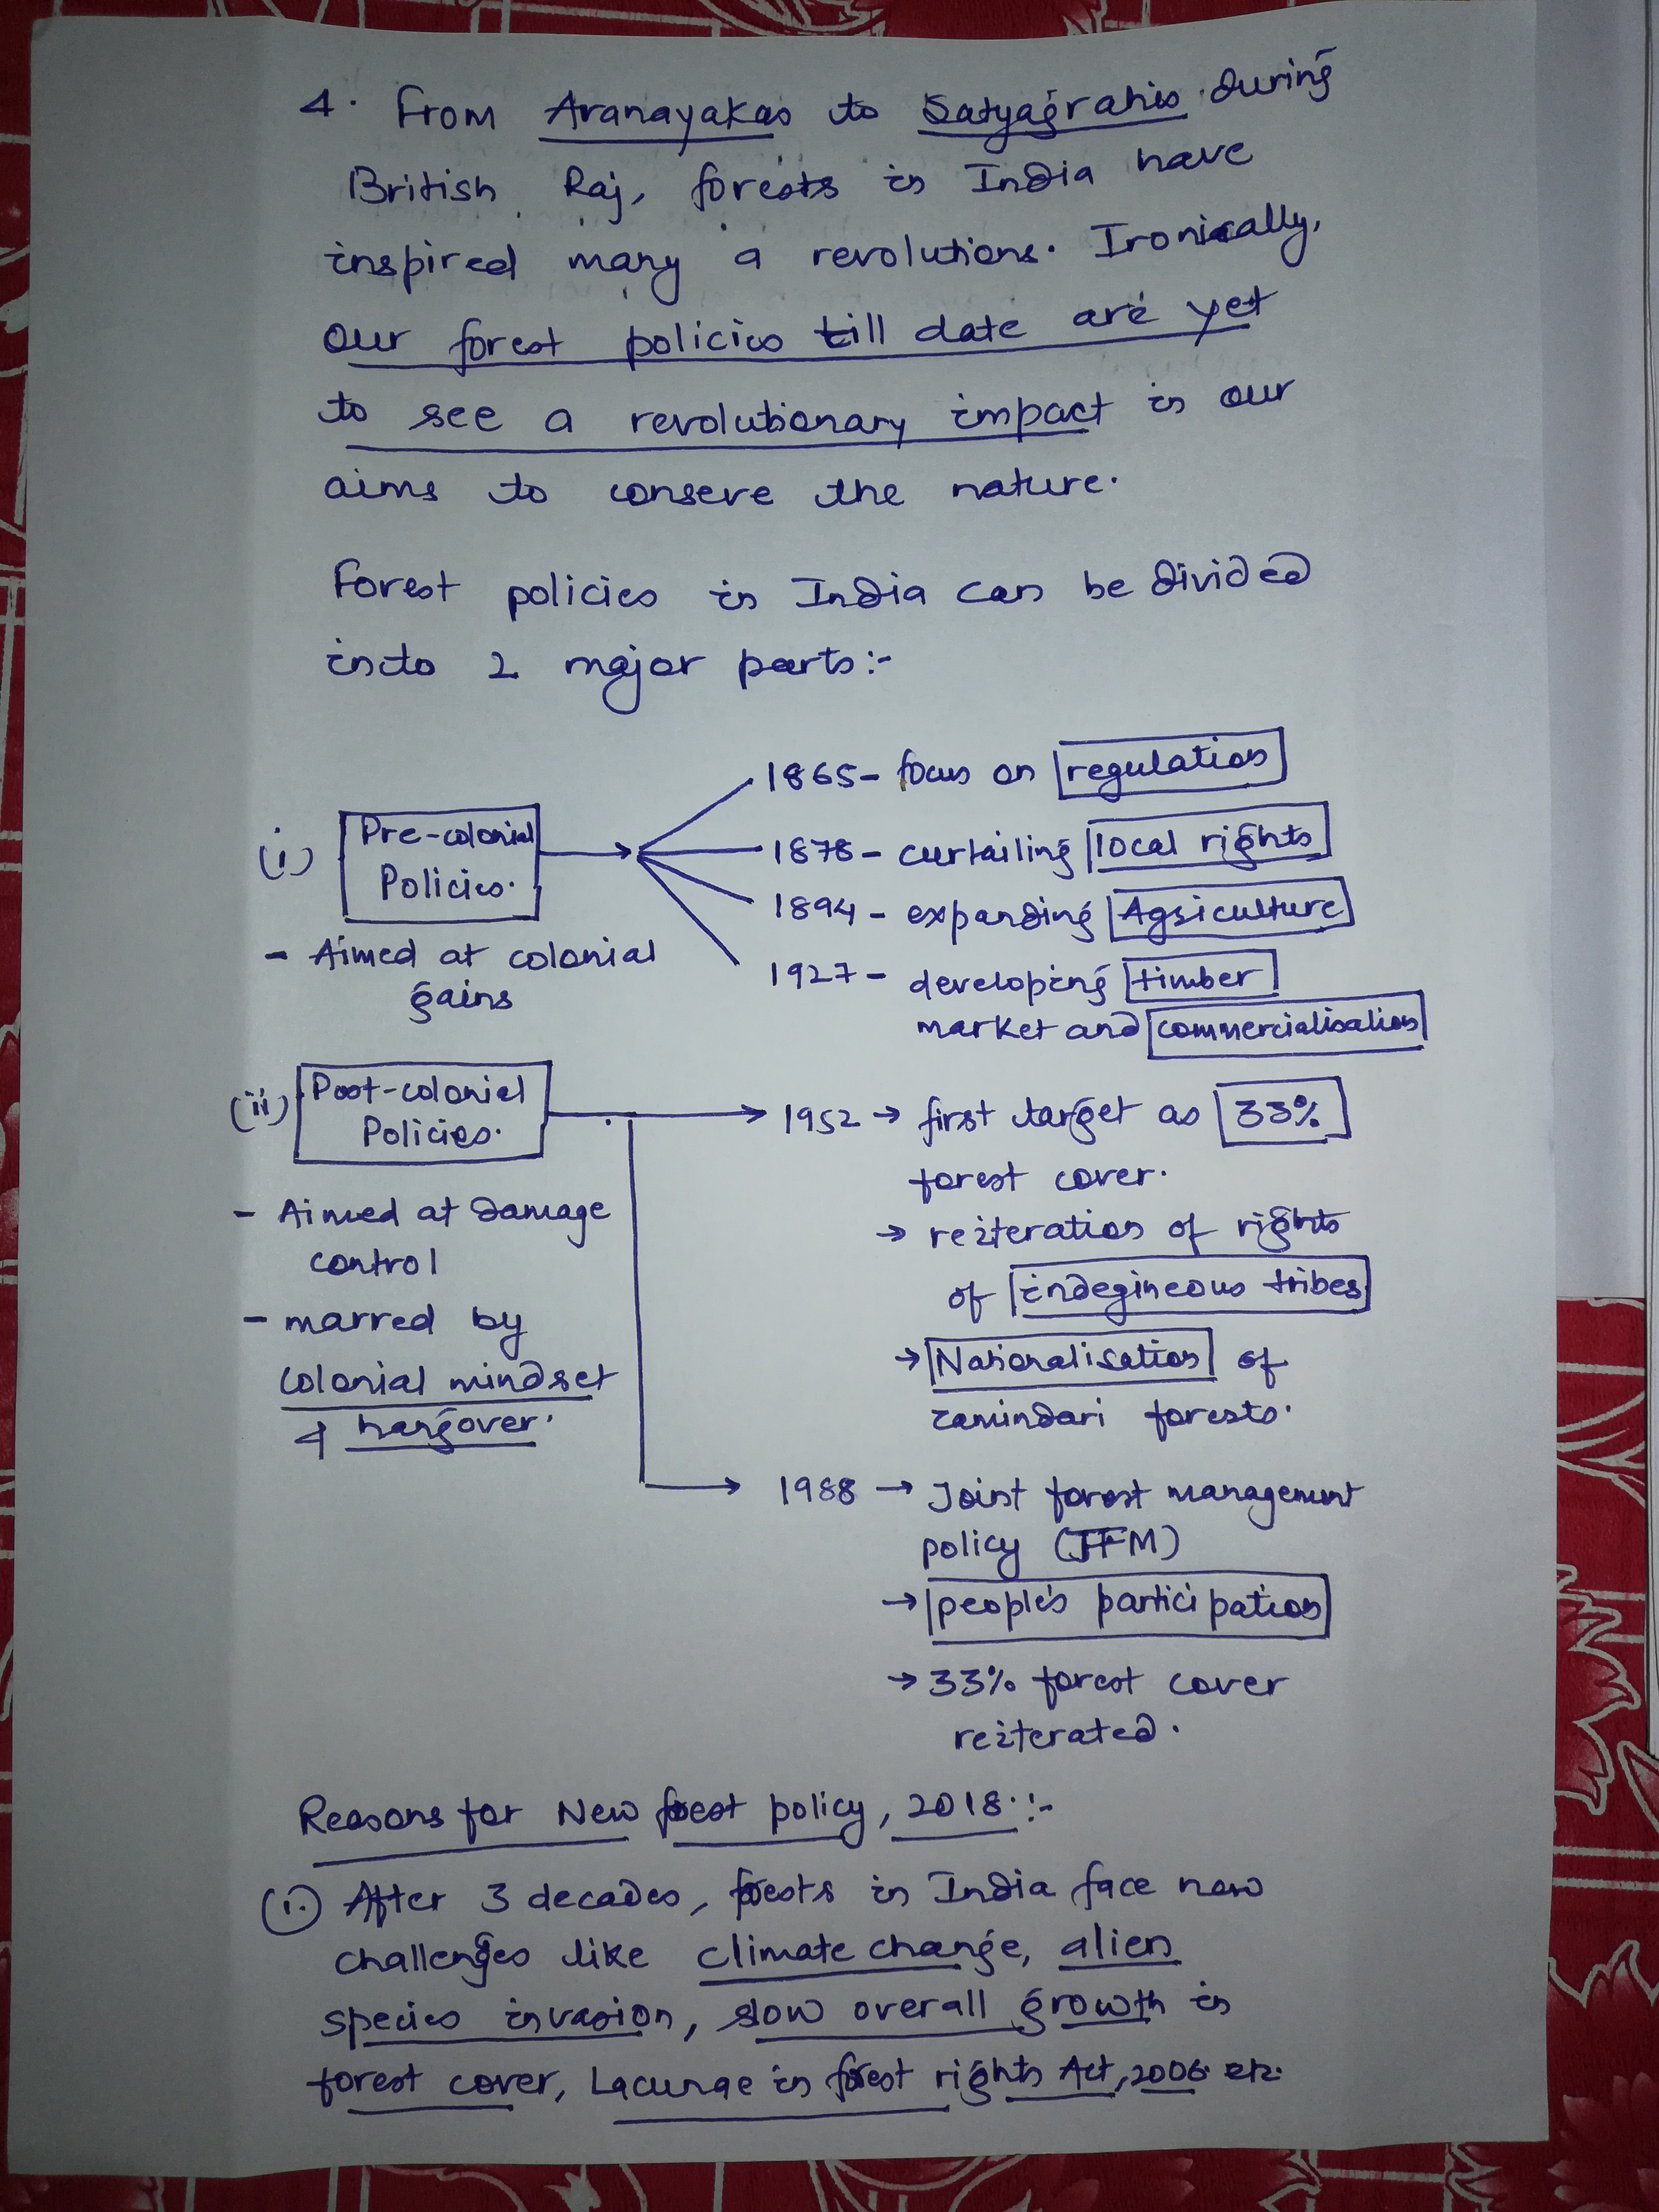 4. From Aranayakas to Satyagrahis during
British Raj, forests in India have
inspired many a revolutions. Ironically,
our forest policies till date are yet
to see a revolutionary impact in our
aims to conserve the nature.
Forest policies in India can be divided
into 2 major parts:-
(i) Pre-colonial
Policies.
- Aimed at colonial
gains
1865- focus on regulation
1878- curtailing local rights
1894- expanding Agriculture
1927- developing timber
market and commercialisation
(ii) Post-colonial
Policies.
- Aimed at damage
control
- marred by
colonial mindset
& hangover.
1952 → first target as 33%
forest cover.
→ reiteration of rights
of indegineous tribes
→ Nationalisation of
zamindari forests.
1988 → Joint forest management
policy (JFM)
→ people's participation
→ 33% forest cover
reiterated.
Reasons for New forest policy, 2018.:-
(i.) After 3 decades, forests in India face new
challenges like climate change, alien
species invasion, slow overall growth in
forest cover, Lacunae in forest rights Act, 2006. etc.